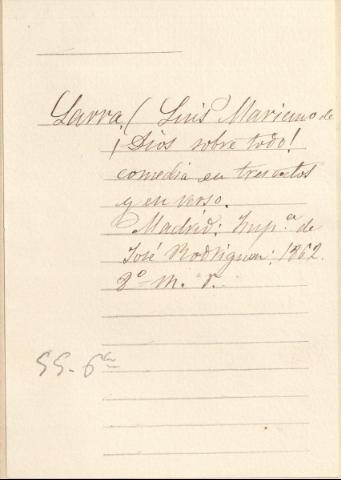 Larra, (Luis Mariano de
¡Dios sobre todo!
comedia en tres actos
y en verso.
Madrid: Imp.ª de
José Rodriguez; 1862.
8º m.
55-6